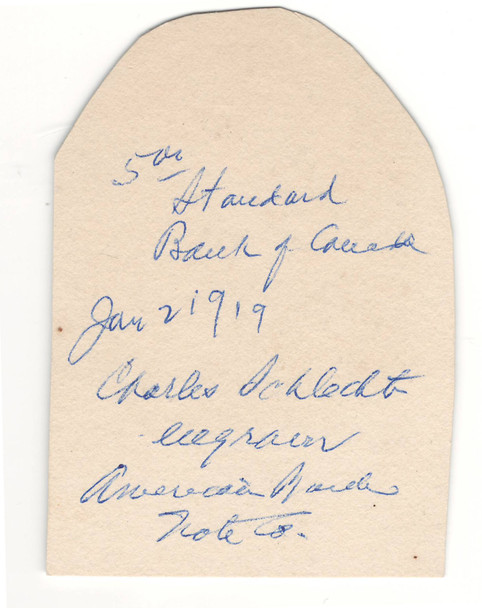 5 00
Standard
Bank of Canada
Jan 2 1919
Charles Schlecht
engraver
American Bank
Note Co.